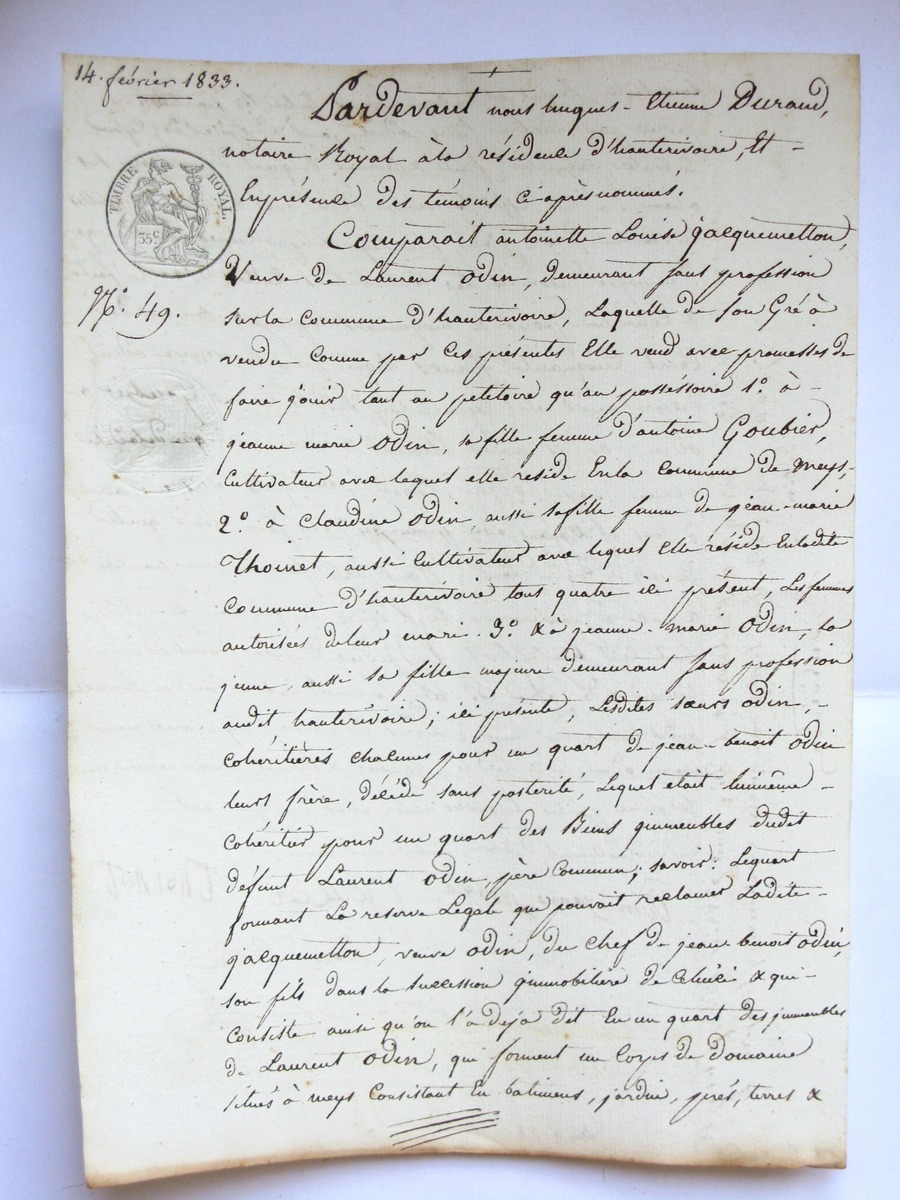 14. février 1833.
Pardevant nous hugues-Etienne Durand,
TIMBRE ROYAL.
35 c
notaire Royal à la résidence d'hauterivoire, Et
Enprésence des témoins Ci après nommés.
Comparait antoinette Louise jacquemetton,
Veuve de Laurent Odin, demeurant sans profession
N.° 49.
sur la Commune d'hauterivoire, Laquelle de son Gré à
vendu Comme par Ces présentes Elle vend avec promesses de
faire jouir tant au petitoire qu'au possessoire 1.° à
jeanne marie Odin, sa fille femme d'antoine Goubier,
Cultivateur avec lequel elle reside Enla Commune de meys,
2.° à Claudine Odin, aussi sa fille femme de jean-marie
Thoinet, aussi Cultivateur avec lequel Elle réside Enladite
Commune d'hauterivoire tous quatre ici présent, Les femmes
autorisées deleur mari. 3.° & à jeanne-marie Odin, la
jeune, aussi sa fille majeure demeurant sans profession
audit hauterivoire; ici présente, Lesdites sœurs Odin,
Cohéritières chacunes pour un quart de jean-benoit Odin
leurs frère, décédé sans posterité, Lequel était luimême
Cohéritier pour un quart des Biens immeubles dudit
défunt Laurent Odin, père Commun; savoir: Lequart
formant La reserve Legale que pouvait reclamer Ladite
jacquemetton, veuve Odin, du Chef de jean benoit Odin,
son fils dans la succession immobilière de Celuici & qui
Consiste ainsi qu'on l'a deja dit En un quart des immeubles
de Laurent Odin, qui forment un Corps de domaine
situés à meys Consistant En batimens, jardin, prés, terres &